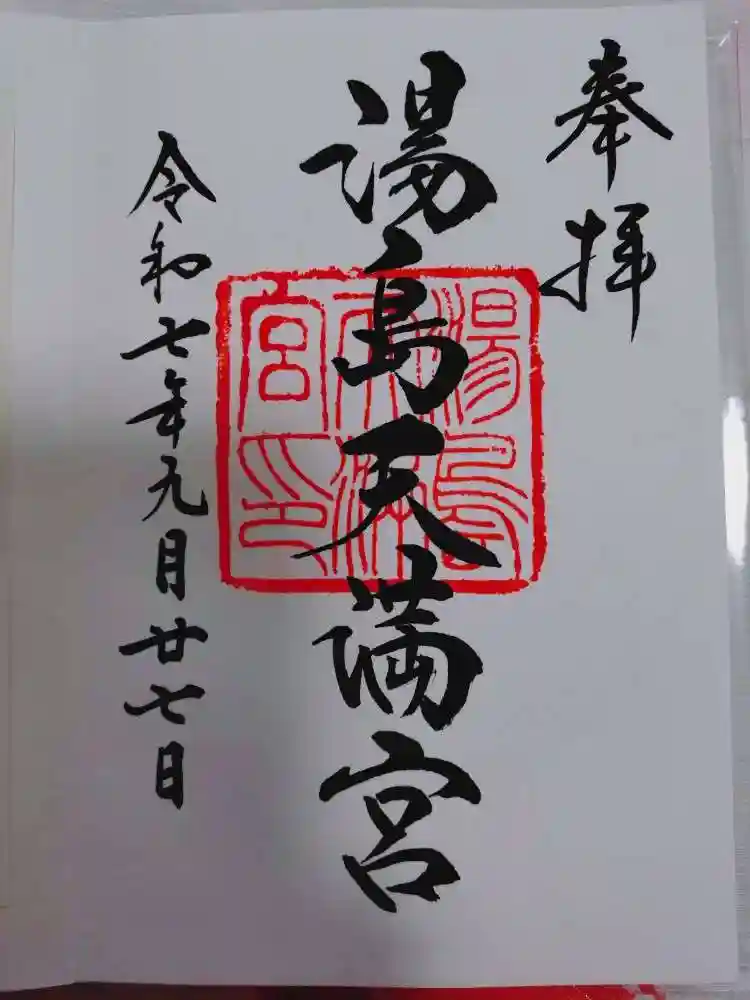 奉拝
湯島天満宮
湯島天満宮印
令和七年九月廿七日